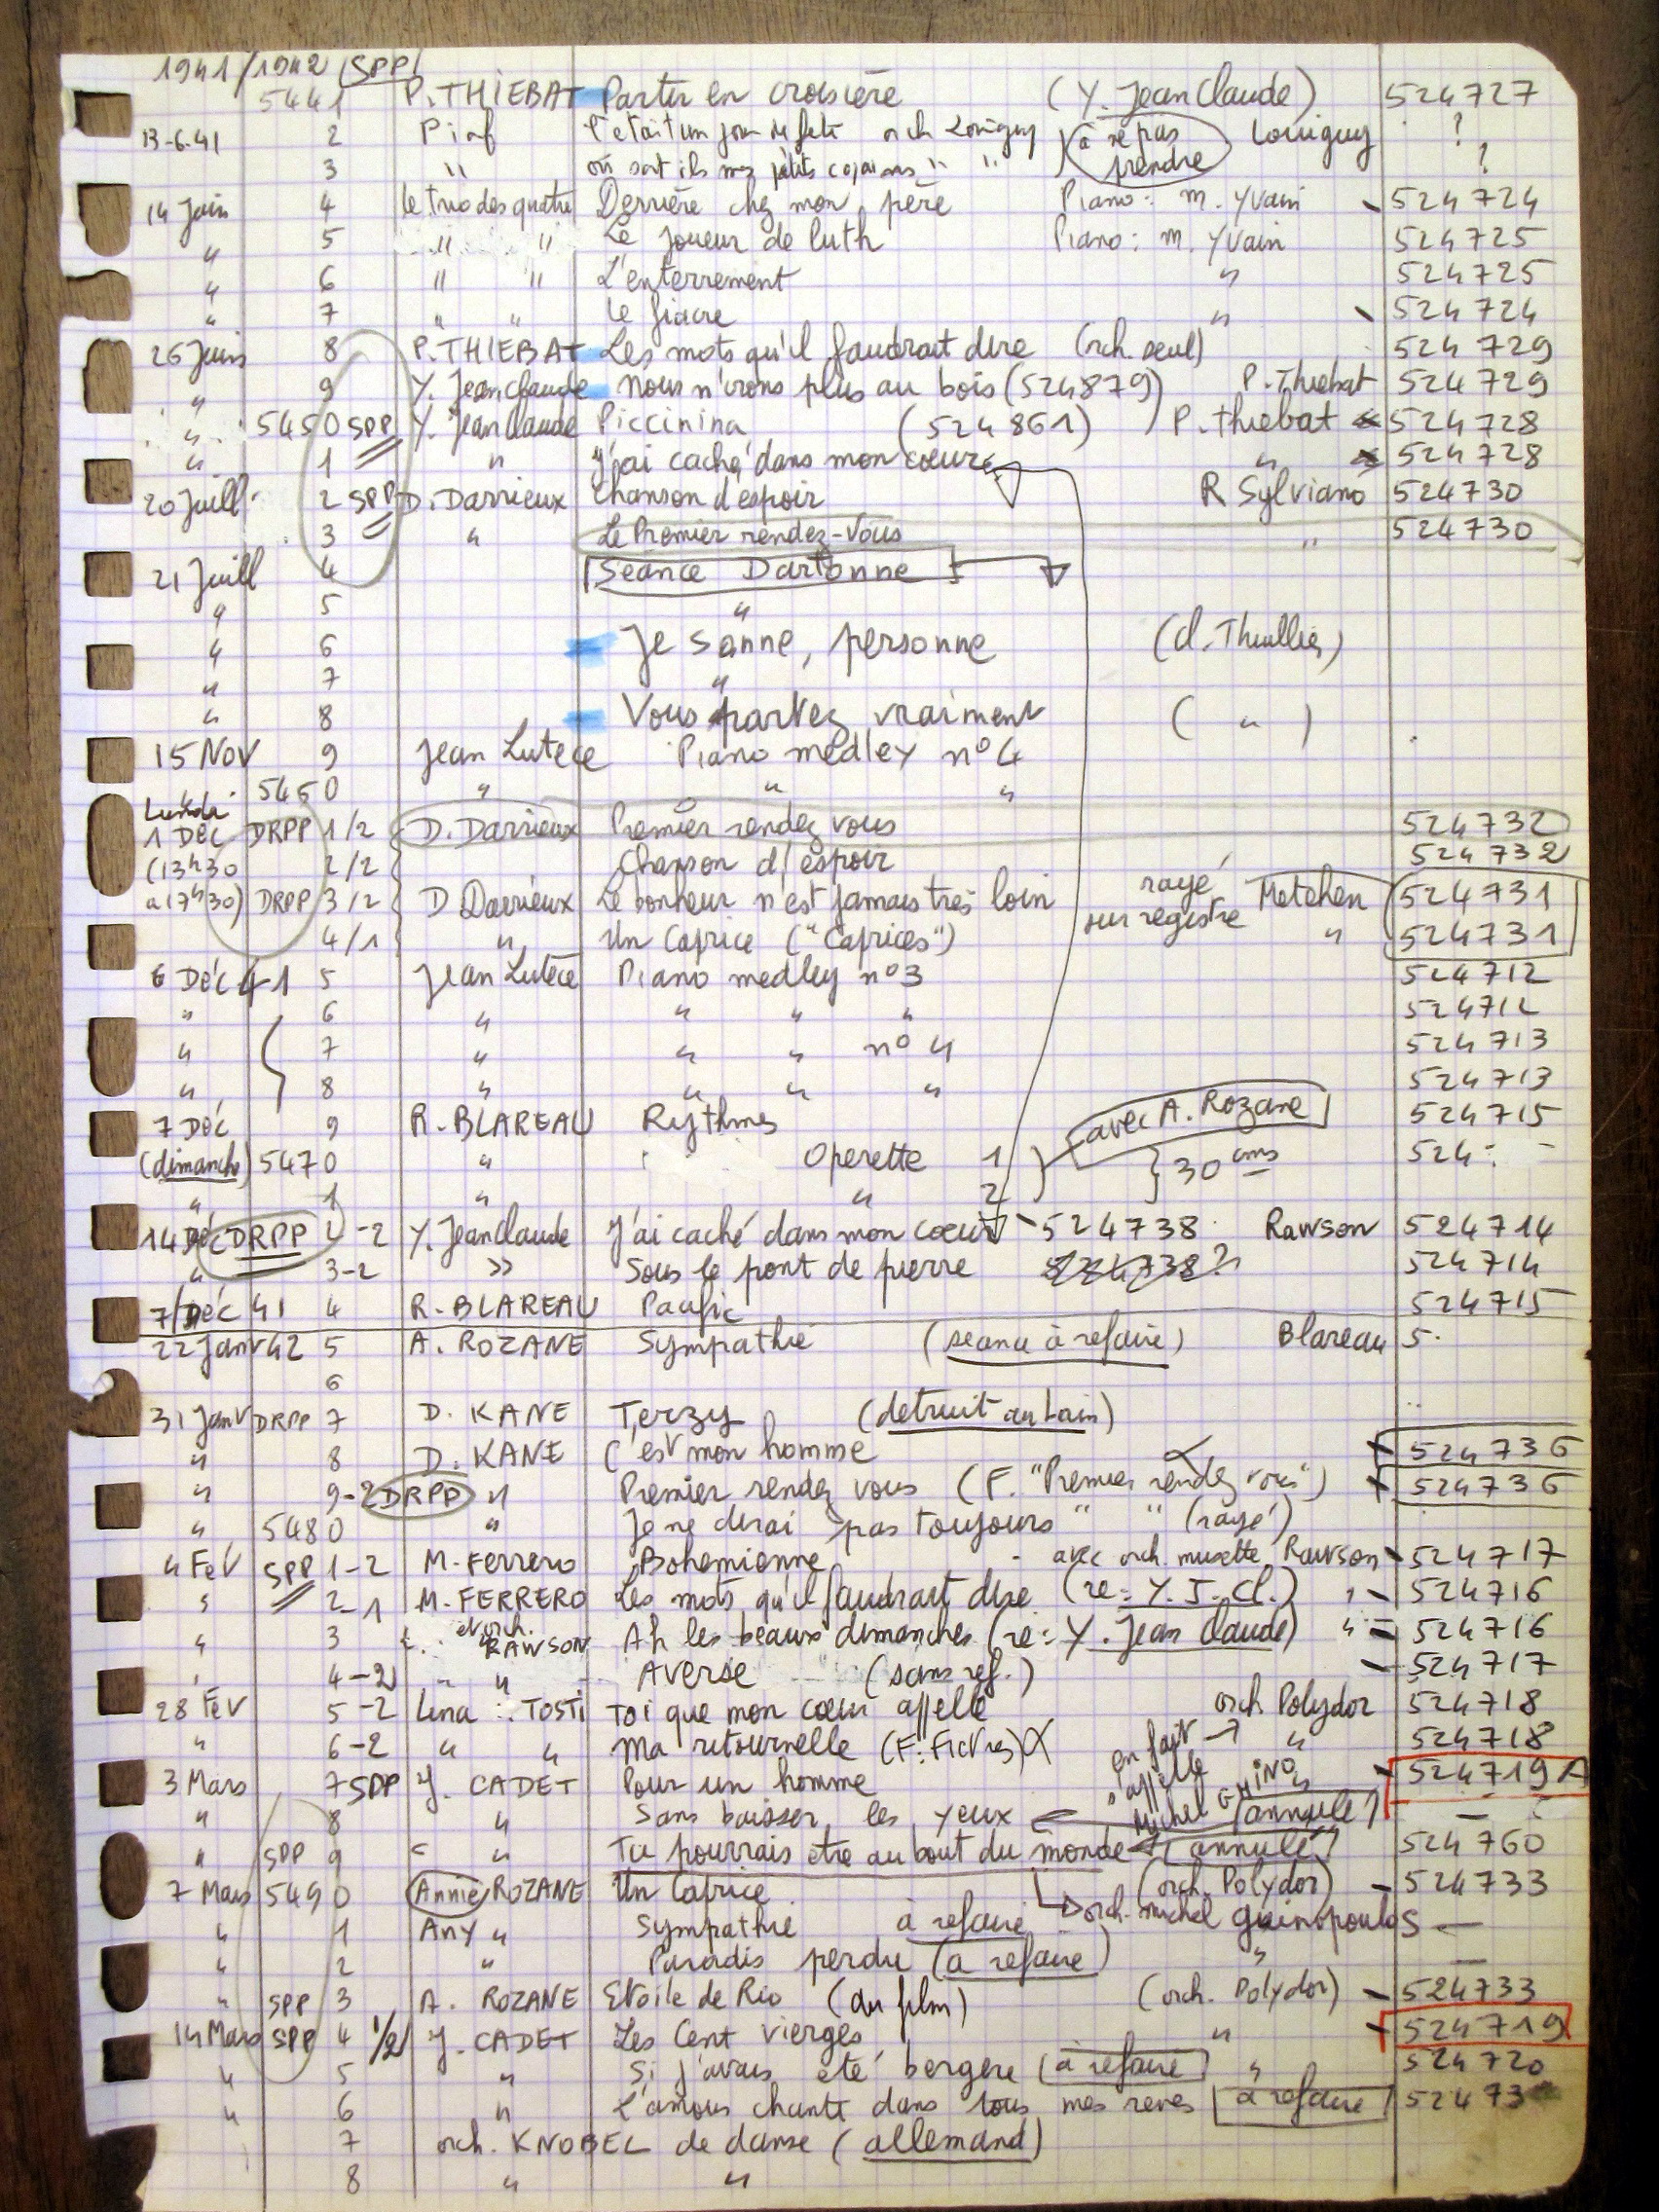 1941/1942 (SPP)
5441 P. THIEBAT Partir en croisière (Y. Jean Claude) 524727
13-6-41 2 Piaf C'était un jour de fête orch Louiguy à ne pas prendre Louiguy ?
3 " où sont ils mes petits copains " " ?
14 Juin 4 le trio des quatre Derrière chez mon père Piano: M. Yvain 524724
" 5 " " Le Joueur de luth Piano: M. Yvain 524725
" 6 " " L'enterrement " 524725
" 7 " " Le fiacre " 524724
26 Juin 8 P. THIEBAT Les mots qu'il faudrait dire (orch. seul) 524729
" 9 Y. Jean Claude Nous n'irons plus au bois (524879) P. Thiebat 524729
" 5450 SPP Y. Jean Claude Piccinina (524861) P. Thiebat 524728
" 1 " J'ai caché dans mon cœur " 524728
20 Juill 2 SPP D. Darrieux Chanson d'espoir R Sylviano 524730
3 " Le Premier rendez-vous " 524730
21 Juill 4 Séance Dartonne
" 5 "
" 6 Je sonne, personne (d. Thuillier)
" 7 "
" 8 Vous partez vraiment ( " )
15 Nov 9 Jean Lutece Piano medley n° 4
5460 " " "
Lundi
1 Déc DRPP 1/2 D. Darrieux Premier rendez vous 524732
(13h30 2/2 Chanson d'espoir 524732
à 17h30) DRPP 3/2 D Darrieux Le bonheur n'est jamais très loin rayé sur registre Metehen 524731
4/1 " Un Caprice ("Caprices") " 524731
6 Déc 41 5 Jean Lutèce Piano medley n° 3 524712
" 6 " " " " 524712
" 7 " " " n° 4 524713
" 8 " " " " 524713
7 Déc 9 R. BLAREAU Rythmes avec A. Rozane 524715
(dimanche) 5470 " Operette 1 } 30 ans 524
" 1 " " 2
14 Déc DRPP 2-2 Y. Jean Claude J'ai caché dans mon cœur 524738 Rawson 524714
" 3-2 » Sous le pont de pierre 524738? 524714
7/Déc 41 4 R. BLAREAU Pacific 524715
22 Janv 42 5 A. ROZANE Sympathie (seance à refaire) Blareau 5
6
31 Janv DRPP 7 D. KANE Terzy (detruit au bain)
" 8 D. KANE C'est mon homme 524736
" 9-2 DRPP " Premier rendez vous (F. "Premier rendez vous") 524736
" 5480 " Je ne dirai pas toujours " " (rayé)
4 Fev SPP 1-2 M. Ferrero Bohemienne avec orch. musette Rawson 524717
" 2-1 M. FERRERO Les mots qu'il faudrait dire (re: Y. J. Cl.) " 524716
" 3 et orch. RAWSON Ah les beaux dimanches (re: Y. Jean Claude) " 524716
4-2 " " AVERSE (sans ref.) 524717
28 Fev 5-2 Lina TOSTI Toi que mon cœur appelle orch Polydor 524718
" 6-2 " " Ma ritournelle (F: Fièvres) en fait s'appelle Michel GHINO " 524718
3 Mars 7 SPP J. CADET Pour un homme 524719 A
" 8 " Sans baisser les yeux (annulé) —
" SPP 9 " Tu pourrais etre au bout du monde (annulé) 524760
7 Mars 5490 Annie ROZANE Un Caprice (orch. Polydor) 524733
" 1 Any " Sympathie à refaire orch. michel guinopoulos —
" 2 " Paradis perdu (à refaire) " —
" SPP 3 A. ROZANE Etoile de Rio (du film) (orch. Polydor) 524733
14 Mars SPP 4 1/2 J. CADET Les Cent vierges " 524719
" 5 " Si j'avais été bergère (à refaire) " 524720
" 6 " L'amour chante dans tous mes reves à refaire 52473
7 orch. KNOBEL de danse (allemand)
8 " "